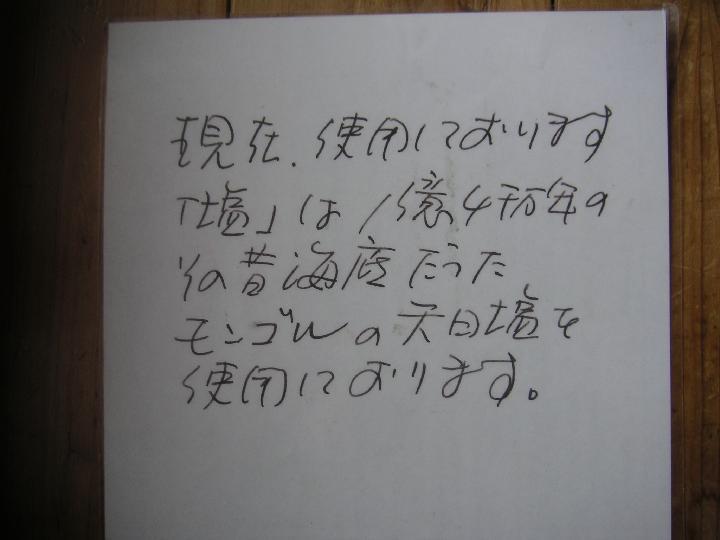 現在、使用しております
「塩」は1億4千万年の
その昔海底だった
モンゴルの天日塩を
使用しております。